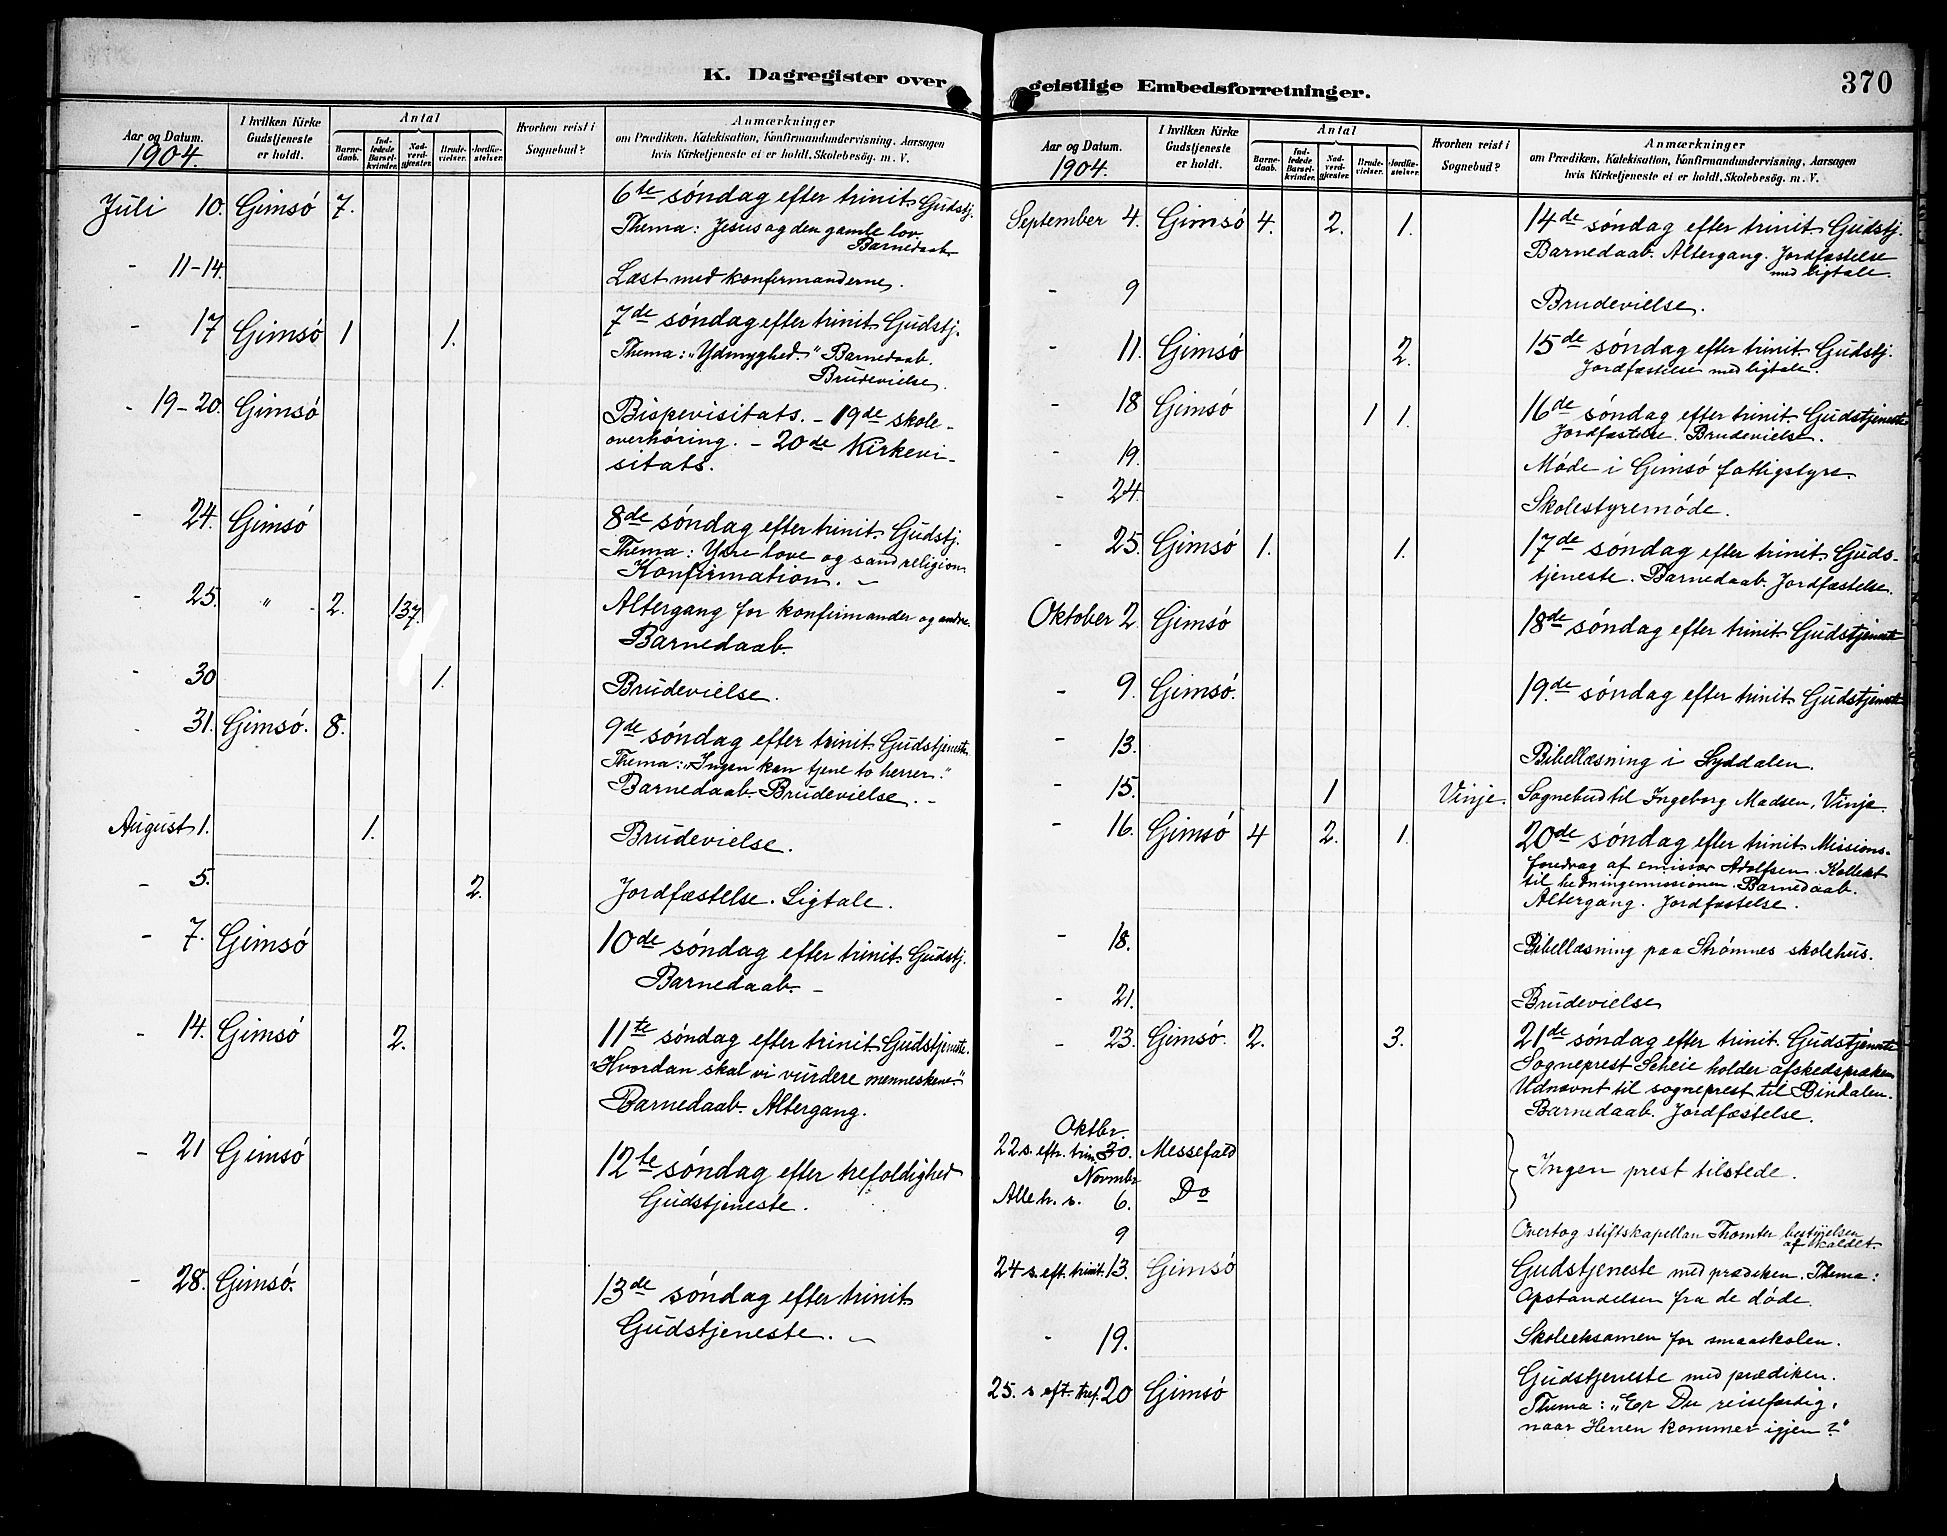 K. Dagregister over
Aar og Datum.
1904.
I hvilken Kirke
Gudstjeneste
er holdt.
Antal
Barne-
daab.
Ind-
ledede
Barsel-
kvinder.
Nad-
verd-
gjæster.
Brude-
vielser.
Jordfæ-
stelser.
Hvorhen reist i
Sognebud?
Anmærkninger
om Prædiken, Katekisation, Konfirmandundervisning, Aarsagen
hvis Kirketjeneste ei er holdt, Skolebesög, m. V.
Juli 10. Gimsó 7. 6te søndag efter trinit. Gudstj.
Thema: Jesus og den gamle lov.
Barnedaab.
- 11-14. Læst med konfirmanderne.
- 17 Gimsó 1 1. 7de søndag efter trinit. Gudstj.
Thema: "Ydmyghed." Barnedaab.
Brudevielse.
- 19-20. Gimsó Bispevisitats. - 19de skole-
overhøring. - 20de Kirkevi-
sitats.
- 24. Gimsó 8de søndag efter trinit. Gudstj.
Thema: Ydre love og sand religion
Konfirmation. -
- 25. " - 2. 137. Altergang for konfirmander og andre.
Barnedaab.
- 30 1. Brudevielse.
- 31. Gimsó. 8. 9de søndag efter trinit. Gudstjeneste
Thema: "Ingen kan tjene to herrer."
Barnedaab. Brudevielse. -
August 1. 1. Brudevielse.
- 5. 2. Jordfæstelse. Ligtale.
- 7. Gimsó 10de søndag efter trinit. Gudstj.
Barnedaab. -
- 14. Gimsó 2. 11te søndag efter trinit. Gudstjeneste.
"Hvordan skal vi vurdere menneskene"
Barnedaab. Altergang.
- 21 Gimsó 12te søndag efter trefoldighed
Gudstjeneste.
- 28. Gimsó. 13de søndag efter trinit
Gudstjeneste. -
geistlige Embedsforretninger.
370
Aar og Datum.
1904.
I hvilken Kirke
Gudstjeneste
er holdt.
Antal
Barne-
daab.
Ind-
ledede
Barsel-
kvinder.
Nad-
verd-
gjæster.
Brude-
vielser.
Jordfæ-
stelser.
Hvorhen reist i
Sognebud?
Anmærkninger
om Prædiken, Katekisation, Konfirmandundervisning, Aarsagen
hvis Kirketjeneste ei er holdt, Skolebesög, m. V.
September 4. Gimsó 4. 2. 1. 14de søndag efter trinit. Gudstj.
Barnedaab. Altergang. Jordfæstelse
med ligtale.
- 9 Brudevielse.
- 11. Gimsó 2. 15de søndag efter trinit. Gudstj.
Jordfæstelse med ligtale.
- 18 Gimsó 1 1. 16de søndag efter trinit. Gudstjeneste
Jordfæstelse. Brudevielse.
- 19. Møde i Gimsó fattigstyre
- 24. Skolestyremøde.
- 25. Gimsó 1. 1. 17de søndag efter trinit. Guds-
tjeneste. Barnedaab. Jordfæstelse.
Oktober 2. Gimsó 18de søndag efter trinit. Gudstjeneste
- 9. Gimsó. 19.de søndag efter trinit. Gudstjeneste
- 13. Bibellæsning i Syddalen.
- 15. 1 Vinje. Sognebud til Ingeborg Madsen, Vinje.
- 16. Gimsó 4 2. 1. 20de søndag efter trinit. Missions-
foredrag af emisær Adolfsen. Kollekt
til hedningemissionen. Barnedaab.
Altergang. Jordfæstelse.
- 18. Bibellæsning paa Strømnes skolehus.
- 21. Brudevielse
- 23. Gimsó. 2. 3. 21de søndag efter trinit. Gudstjeneste
Sogneprest Scheie holder afskedspræken
Udnævnt til sogneprest til Bindalen.
Barnedaab. Jordfæstelse.
Oktbr.
22 s. eftr. trin. 30. Messefald
Ingen prest tilstede.
Novmbr
Alle h. s. 6. Do
9 Overtog stiftskapellan Thomter bestyrelsen
af kaldet.
24 s. eft. trinit. 13. Gimsó Gudstjeneste med prædiken. Thema:
Opstandelsen fra de døde.
- 19. Skoleeksamen for smaaskolen.
25. s eft. tref. 20 Gimsó Gudstjeneste med prædiken.
Thema: "Er Du reisefærdig,
naar Herren kommer igjen?"